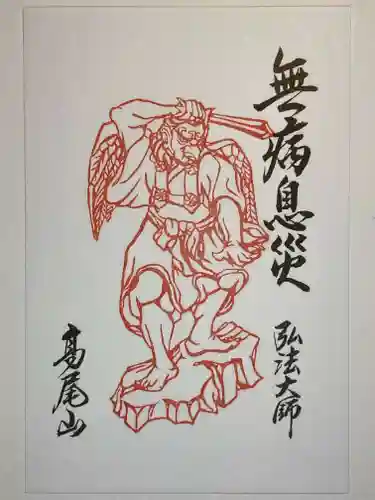 無病息災
弘法大師
髙尾山